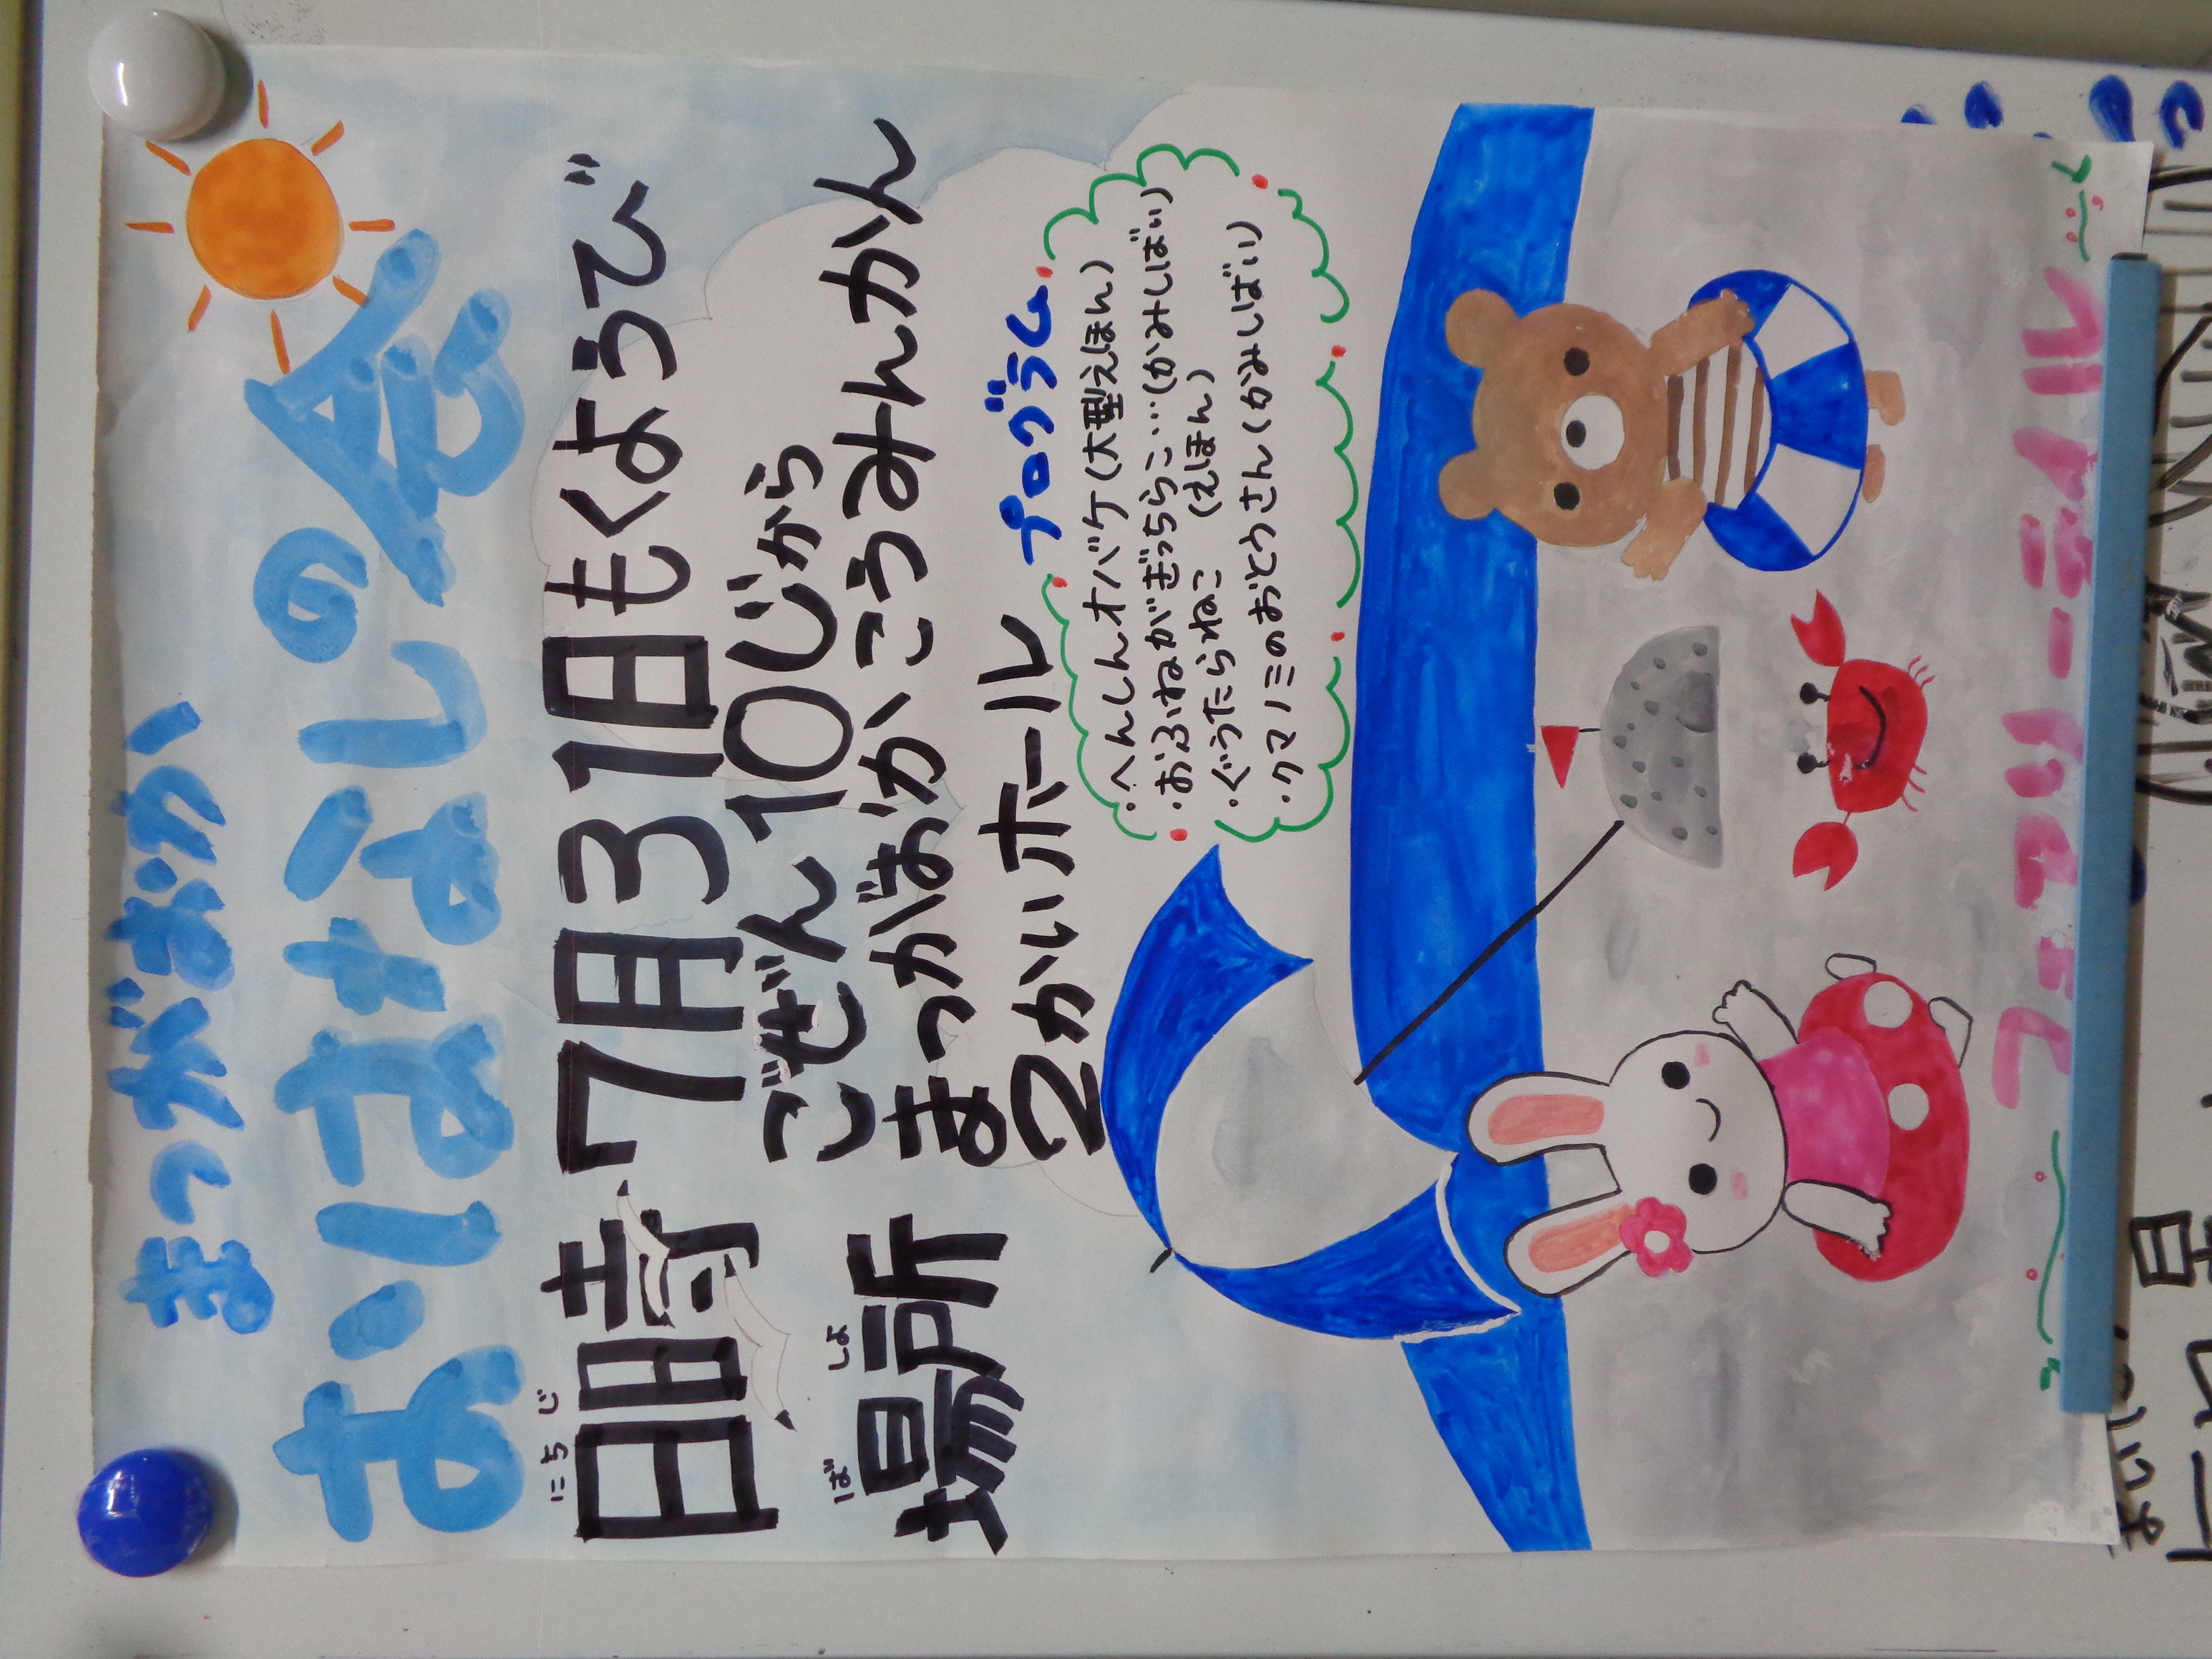 まつがおか
おはなしの会
にちじ
日時 7月31日もくようび
ごぜん10じから
ばしょ
場所 まつがおかこうみんかん
2かいホール
プログラム
・へんしんオバケ(大型えほん)
・おふねがぎっちらこ…(かみしばい)
・ぐうたらねこ (えほん)
・クマノミのおとうさん(かみしばい)
フェアリーテイル